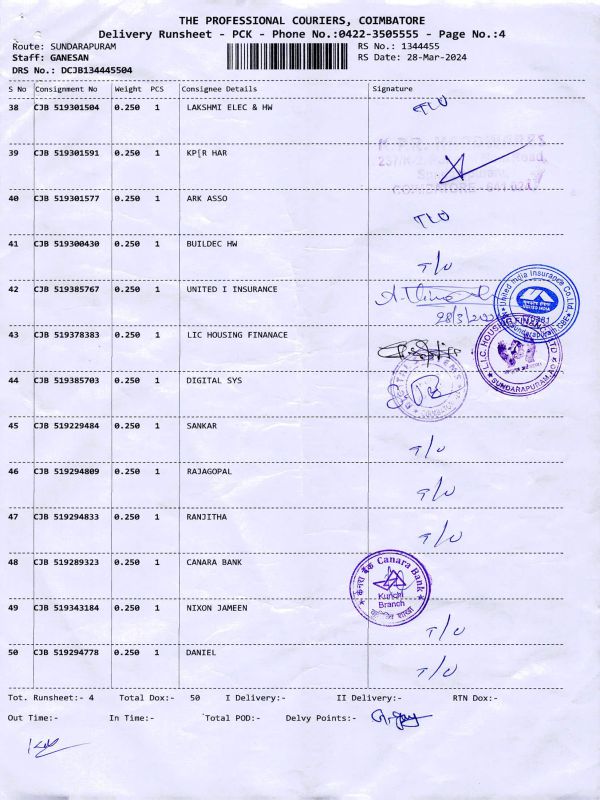 THE PROFESSIONAL COURIERS, COIMBATORE
Delivery Runsheet - PCK - Phone No.:0422-3505555 - Page No.:4
Route: SUNDARAPURAM RS No.: 1344455
Staff: GANESAN RS Date: 28-Mar-2024
DRS No.: DCJB134445504
S No Consignment No Weight PCS Consignee Details Signature
38 CJB 519301504 0.250 1 LAKSHMI ELEC & HW TLU
39 CJB 519301591 0.250 1 KP[R HAR
COIMBATORE - 641 024
40 CJB 519301577 0.250 1 ARK ASSO TLU
41 CJB 519300430 0.250 1 BUILDEC HW T/U
42 CJB 519385767 0.250 1 UNITED I INSURANCE
United India Insurance Co. Ltd.
UNITED INDIA
28/3/202
43 CJB 519378383 0.250 1 LIC HOUSING FINANACE
L.I.C. HOUSING FINANCE LTD
SUNDARAPURAM.AO
44 CJB 519385703 0.250 1 DIGITAL SYS
45 CJB 519229484 0.250 1 SANKAR T/U
46 CJB 519294809 0.250 1 RAJAGOPAL T/U
47 CJB 519294833 0.250 1 RANJITHA T/U
48 CJB 519289323 0.250 1 CANARA BANK
केनरा बैंक Canara Bank
Kurichi
Branch
49 CJB 519343184 0.250 1 NIXON JAMEEN T/U
50 CJB 519294778 0.250 1 DANIEL T/U
Tot. Runsheet:- 4 Total Dox:- 50 I Delivery:- II Delivery:- RTN Dox:-
Out Time:- In Time:- Total POD:- Delvy Points:-